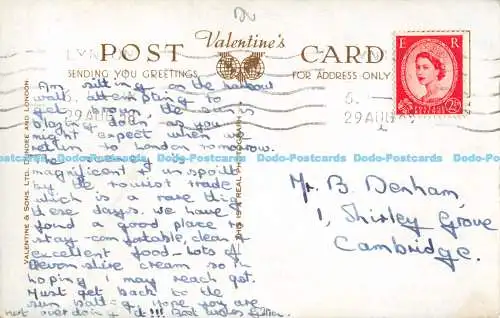 Valentine's
POST CARD
SENDING YOU GREETINGS
FOR ADDRESS ONLY
E R
2½
LYN
5.
29 AUG
29 AUG
Am sitting on the harbour
wall, attempting to
get brown, the sun is
blazing down as you
might expect when we
return to London tomorrow.
The scenery is
magnificent & unspoilt
by the tourist trade
which is a rare thing
these days. We have
found a good place to
stay - comfortable, clean &
excellent food - lots of
Devonshire cream so I'm
hoping I may reach 9st.
Must get back to the
sun bathing. Hope you are
not overdoing it!!! Best wishes
Mr. B. Denham,
1, Shirley Grove
Cambridge.
VALENTINE & SONS. LTD., DUNDEE AND LONDON.
THIS IS A REAL PHOTOGRAPH
Dodo-Postcards Dodo-Postcards Dodo-Postcards Dodo-Postcards Dodo-Postcards Dodo-Postcards